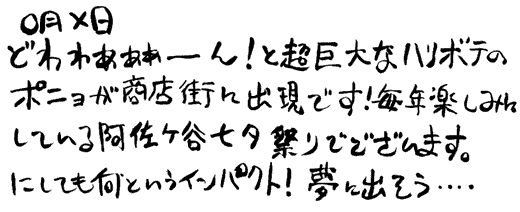 〇月×日
どわわぁぁぁーん!と超巨大なハリボテの
ポニョが商店街に出現です!毎年楽しみに
している阿佐ヶ谷七夕祭りでございます。
にしても何というインパクト!夢に出そう‥‥